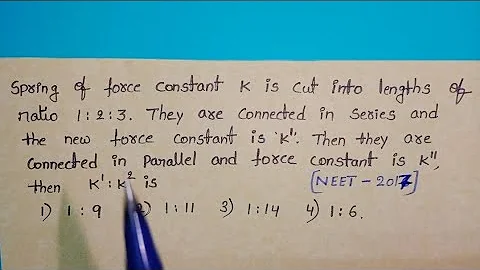 Spring of force constant K is cut into lengths of
ratio 1:2:3. They are connected in Series and
the new force constant is 'K'. Then they are
Connected in Parallel and force constant is K",
then K' : K² is [NEET - 2017]
1) 1:9 2) 1:11 3) 1:14 4) 1:6.